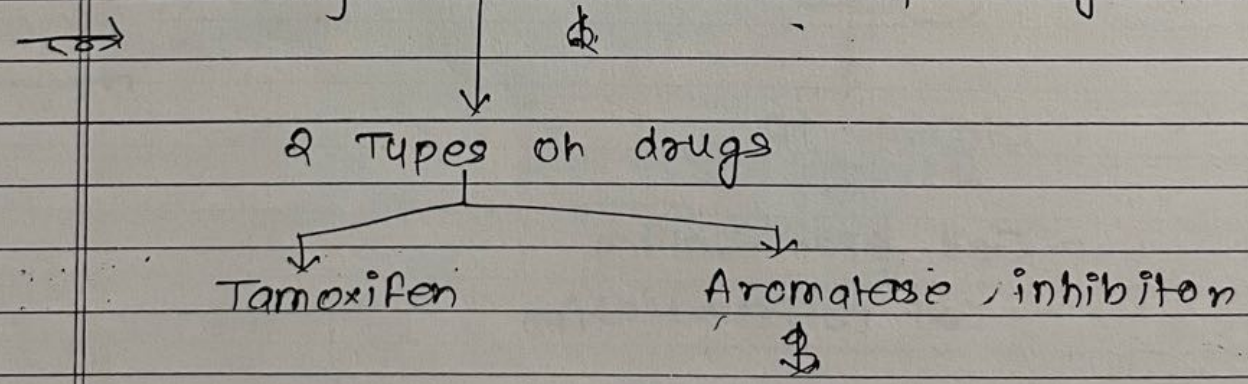 2 Types oh drugs
Tamoxifen Aromatase inhibiton